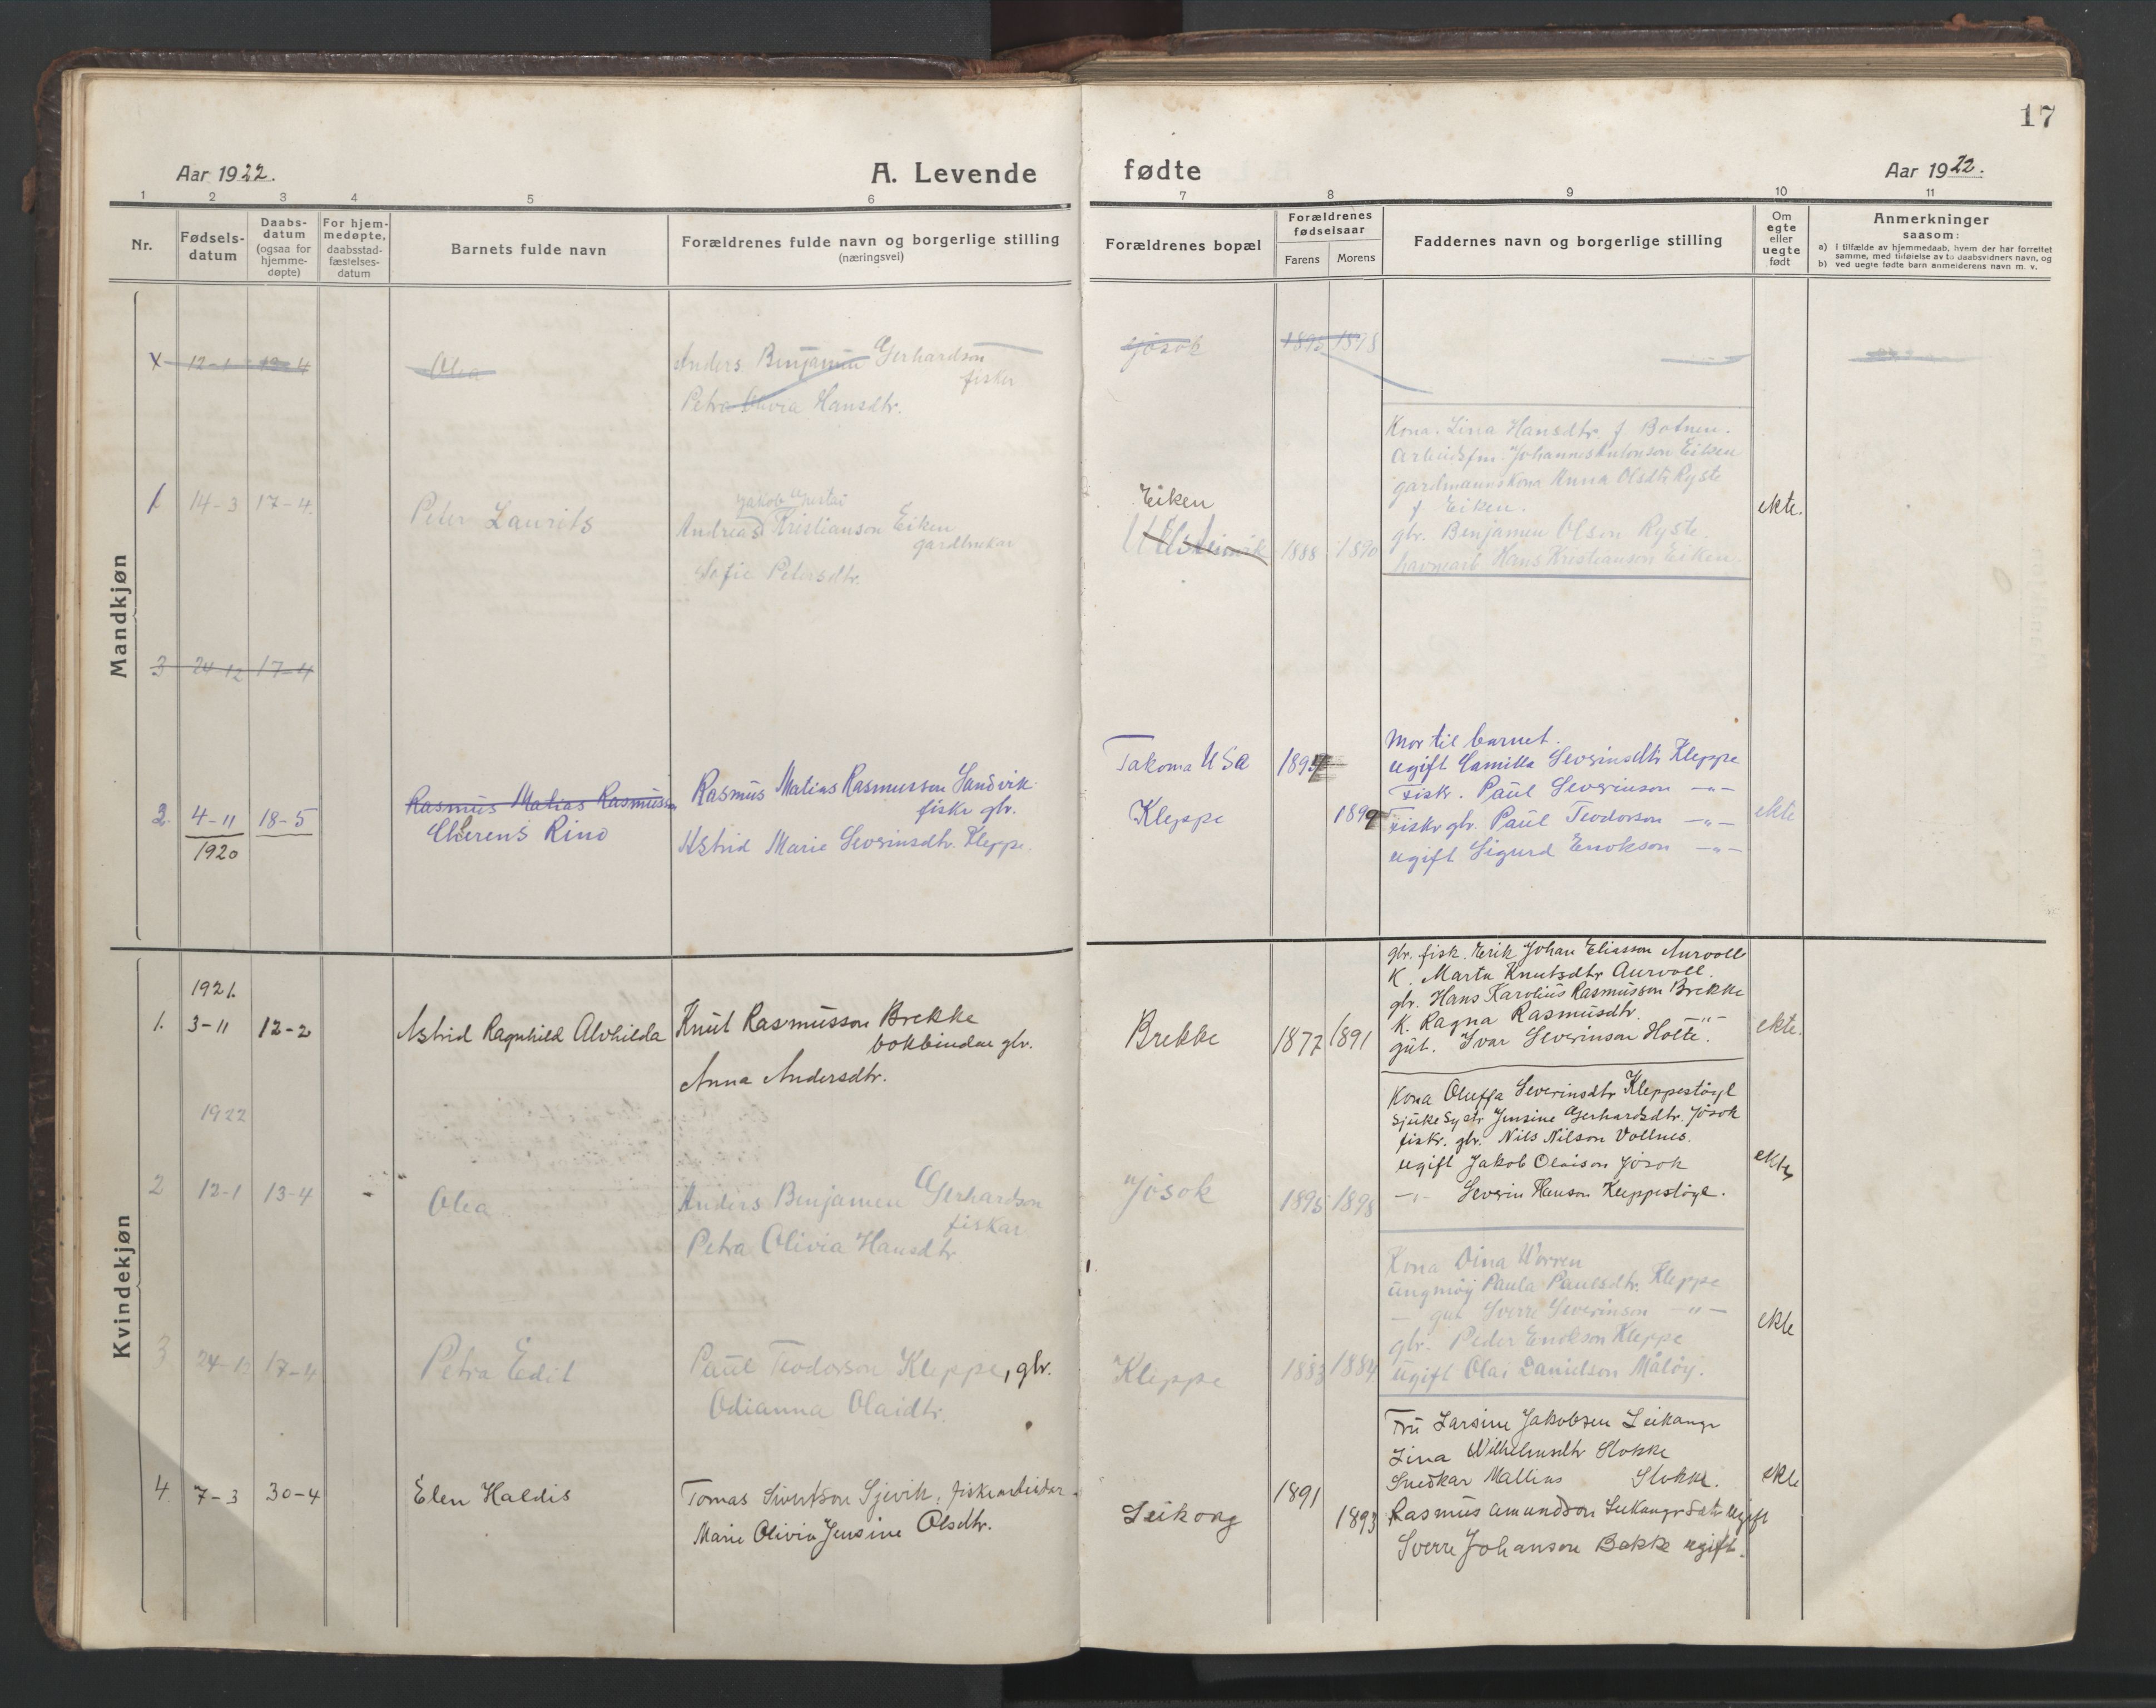 17
Aar 1922.
A. Levende fødte
Aar 1922.
1 2 3 4 5 6 7 8 9 10 11
Nr.
Fødsels-
datum
Daabs-
datum
(ogsaa for
hjemme-
døpte)
For hjem-
medøpte,
daabsstad-
fæstelses-
datum
Barnets fulde navn
Forældrenes fulde navn og borgerlige stilling
(næringsvei)
Forældrenes bopæl
Forældrenes
fødselsaar
Farens Morens
Faddernes navn og borgerlige stilling
Om
egte
eller
uegte
født
Anmerkninger
saasom:
a) i tilfælde av hjemmedaab, hvem der har forrettet
samme, med tilføielse av to daabsvidners navn, og
b) ved uegte fødte barn anmelderens navn m. v.
Mandkjøn
12-1 13-4
Olea
Anders Benjamin Gerhardson
fisker
Petra Olivia Hansdtr.
Jösok
1895 1898
1 14-3 17-4.
Peter Laurits
Jakob Gustav
Andreas Kristianson Eiken
gardbrukar
Sofie Petersdtr.
Eiken
1888 1890
Kona. Lina Hansdtr. f Botnen.
Arbeidsfm. Johannes Antonson Eiksen
gardmannskona Anna Olsdtr Ryste
f Eiken.
gbr. Benjamin Olson Ryste.
havnearb. Hans Kristianson Eiken.
ekte.
3 24-12 17-4
2. 4-11 18-5
1920
Rasmus Matias Rasmusson
Clerens Rino
Rasmus Matias Rasmusson Sandvik
fisker gbr.
Astrid Marie Severinsdtr. Kleppe.
Takoma USA
Kleppe
1894
1899
Mor til barnet.
ugift Camilla Severinsdtr Kleppe
Fiskr. Paul Severinson -"-
Fiskr gbr. Paul Teodorson -"-
ugift Sigurd Enokson -"-
ekte
Kvindekjøn
1921.
1. 3-11 12-2
Astrid Ragnhild Alvhilda
Knut Rasmusson Brekke
bokbindar gbr.
Anna Andersdtr.
Brekke
1877 1891
gbr. fisk. Eerik Johan Eliasson Aurvoll
K. Marta Knutsdtr Aurvoll.
gbr. Hans Karolius Rasmusson Brekke
K. Ragna Rasmusdtr. -"-
gut. Ivar Severinson Holte.
ekte.
1922
2 12-1 13-4
Olea
Anders Benjamen Gerhardson
fiskar
Petra Olivia Hansdtr.
Jösok
1895 1898
Kona Oluffa Severinsdtr Kleppestöyl
Sjuke Systr Jensine Gerhardsdtr. Jösok
fiskr. gbr. Nils Nilson Vollnes.
ugift Jakob Olaison Jösok
-"- Severin Hanson Kleppestöyl.
ekte
3 24-12 17-4
Petra Edit
Paul Teodorson Kleppe, gbr.
Odianna Olaidtr.
Kleppe
1883 1884
Kona Dina Worren
ungmöy Paula Paulsdtr. Kleppe
- gut Sverre Severinson -"-
gbr. Peder Enokson Kleppe
ugift Olai Danielson Målöy.
ekte
4. 7-3 30-4
Elen Haldis
Tomas Sivertson Sjevik, fiskearbeidar.
Marie Olivia Jensine Olsdtr.
Leikong
1891
1893
Fru Larsine Jakobsen Leikangr
Lina Wilhelmsdtr Stokke
Snedkar Mallius Stokke.
Rasmus Amundson Leikangrsætr ugift
Sverre Johanson Bakke ugift.
ekte